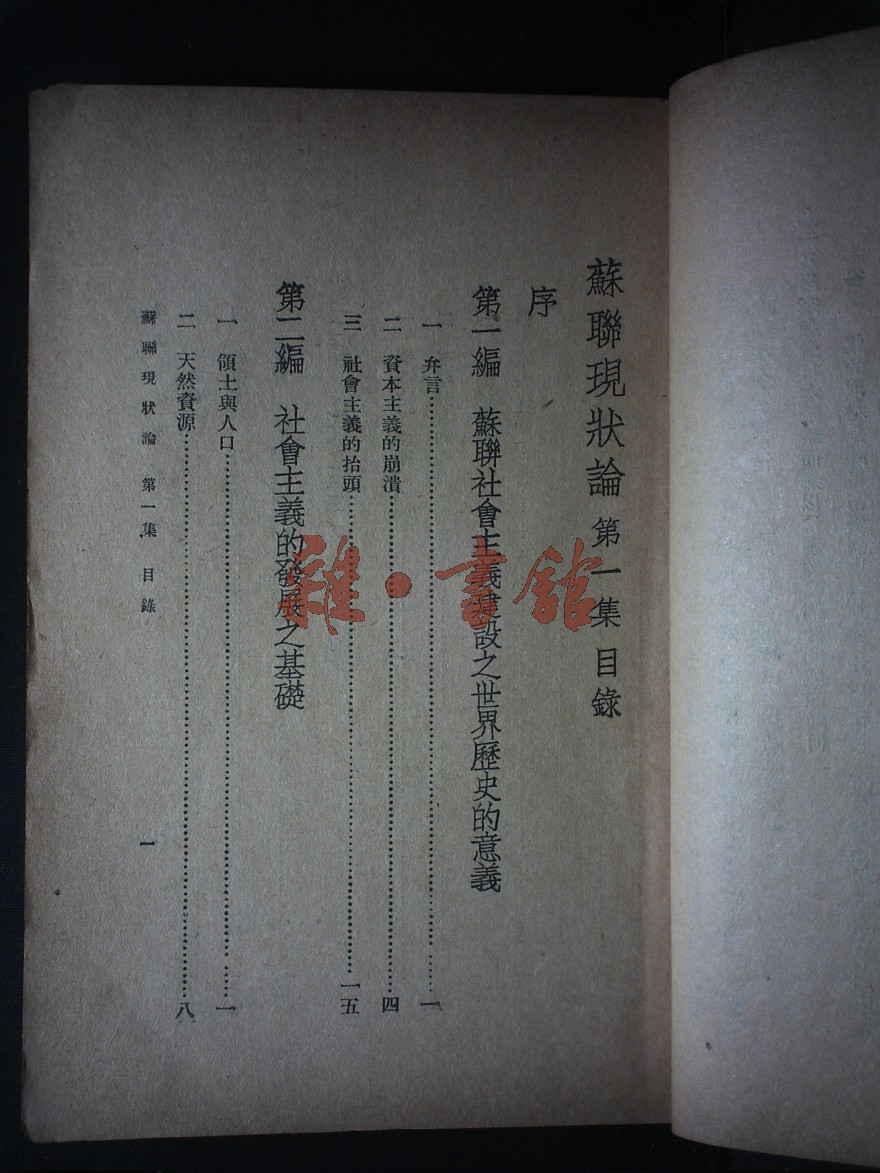 蘇聯現狀論 第一集 目錄
序
第一編 蘇聯社會主義建設之世界歷史的意義
一 弁言…………一
二 資本主義的崩潰…………四
三 社會主義的抬頭…………一五
第二編 社會主義的發展之基礎
一 領土與人口…………一
二 天然資源…………八
蘇聯現狀論 第一集 目錄 一
雜·書館